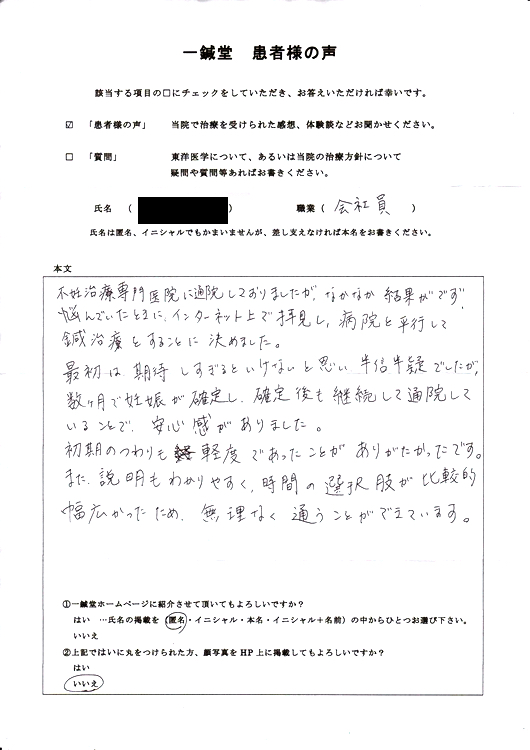 一鍼堂　患者様の声
該当する項目の□にチェックをしていただき、お答えいただければ幸いです。
☑　「患者様の声」　当院で治療を受けられた感想、体験談などお聞かせください。
□　「質問」　東洋医学について、あるいは当院の治療方針について
疑問や質問等あればお書きください。
氏名　（　　　）　職業（　会社員　）
氏名は匿名、イニシャルでもかまいませんが、差し支えなければ本名をお書きください。
本文
不妊治療専門医院に通院しておりましたが、なかなか結果がでず
悩んでいたときに、インターネット上で拝見し、病院と平行して
鍼治療をすることに決めました。
最初は期待しすぎるといけないと思い半信半疑でしたが、
数ヶ月で妊娠が確定し、確定後も継続して通院して
いることで、安心感がありました。
初期のつわりも軽度であったことがありがたかったです。
また、説明もわかりやすく、時間の選択肢が比較的
幅広かったため、無理なく通うことができています。
①一鍼堂ホームページに紹介させて頂いてもよろしいですか？
はい　…氏名の掲載を（匿名・イニシャル・本名・イニシャル＋名前）の中からひとつお選び下さい。
いいえ
②上記ではいに丸をつけられた方、顔写真をHP上に掲載してもよろしいですか？
はい
いいえ